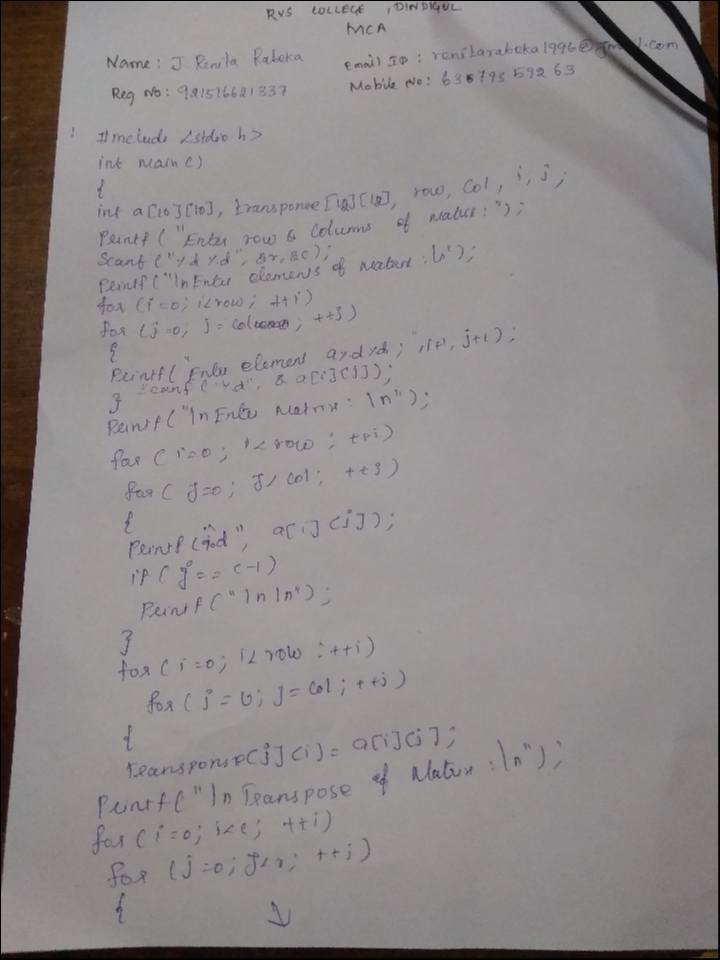 RVS COLLEGE , DINDIGUL
MCA
Name : J. Renita Rabeka
Email ID : renitarabeka1996@gmail.com
Reg No : 921516621337
Mobile No : 63 793 592 63
1 #include <stdio.h>
int main ()
{
int a [10] [10], transponse [10] [10], row, Col, i, j ;
Printf ( "Enter row & Colums of Matrix : ");
Scanf ("%d %d", &r, &c);
Printf ("\n Enter elements of Matrix : \n");
for (i=0; i<row; ++i)
for (j=0; j= col ; ++j)
{
Printf( "Enter element a%d%d; ", i+1, j+1);
Scanf ("%d", & a[i][j]);
}
Printf("\n Enter Matrix : \n");
for ( i=0; i< row ; ++i)
for ( j=0; j< col; ++j)
{
Printf ("%d", a[i] [j]);
if ( j == c-1)
Printf (" \n \n");
}
for (i=0; i< row : ++i)
for ( j = 0; j= Col ; ++j)
{
Transponse[j] [i] = a[i][j];
Printf (" \n Transpose of Matrix : \n");
for (i=0; i<c; ++i)
for (j=0; j<r; ++j)
{